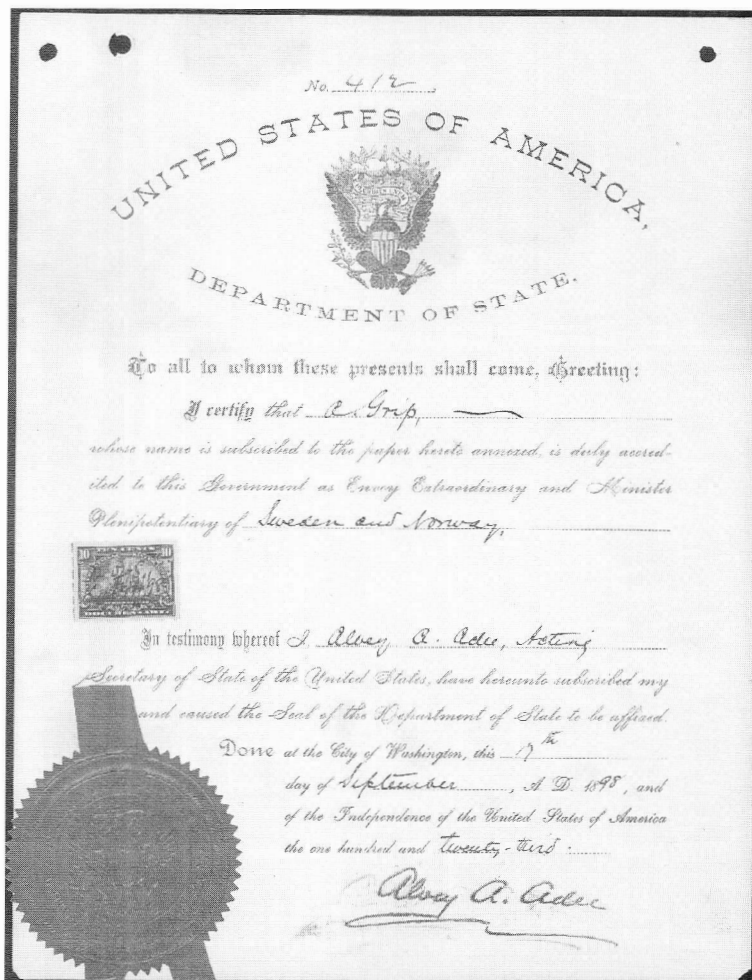 No. 412.
UNITED STATES OF AMERICA,
DEPARTMENT OF STATE.
To all to whom these presents shall come, Greeting:
I certify that A. Grip,
whose name is subscribed to the paper hereto annexed, is duly accred-
ited to this Government as Envoy Extraordinary and Minister
Plenipotentiary of Sweden and Norway,
10 10
DOCUMENTARY
In testimony whereof I Alvey A. Adee, Acting
Secretary of State of the United States, have hereunto subscribed my
and caused the Seal of the Department of State to be affixed.
Done at the City of Washington, this 17th
day of September, A D. 1898, and
of the Independence of the United States of America
the one hundred and twenty-third.
Alvey A. Adee